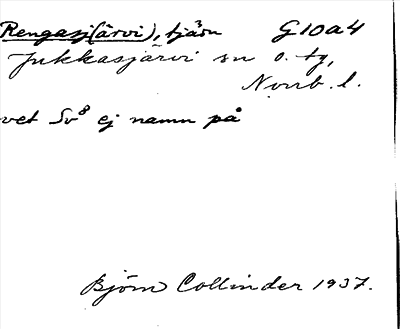 Rengasj(ärvi), tjärn G10a4
Jukkasjärvi sn o. tg,
Norrb. l.
vet Sv⁸ ej namn på
Björn Collinder 1937.